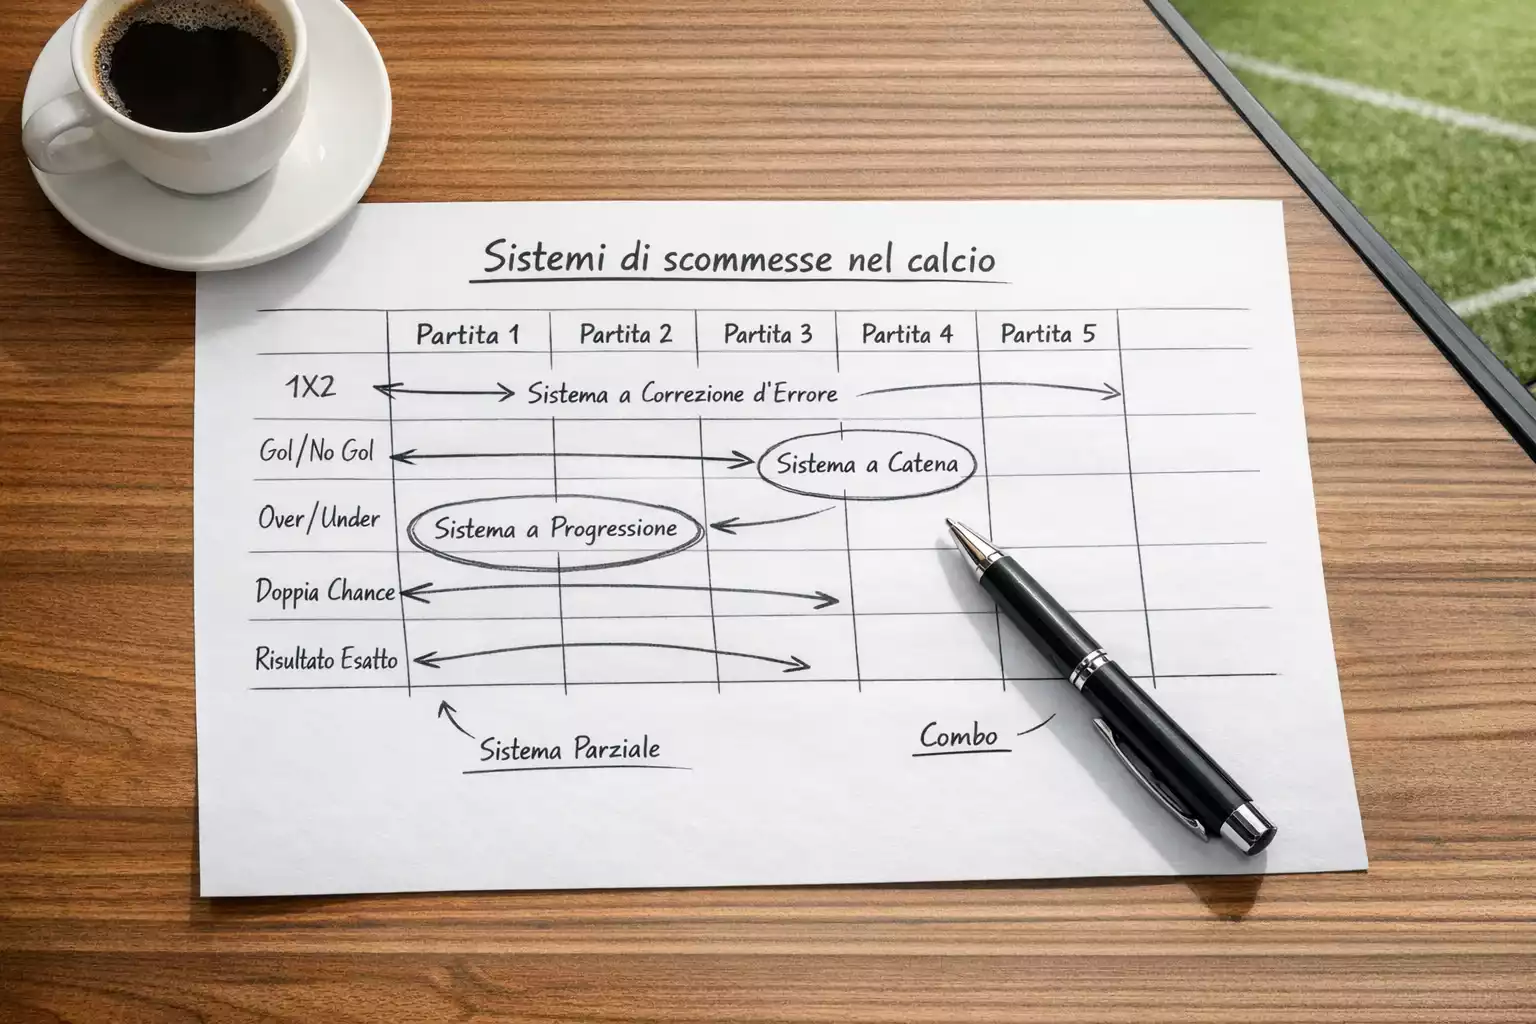 Sistemi di scommesse nel calcio
Partita 1 Partita 2 Partita 3 Partita 4 Partita 5
1X2 Sistema a Correzione d'Errore
Gol/No Gol Sistema a Catena
Over/Under Sistema a Progressione
Doppia Chance
Risultato Esatto
Sistema Parziale Combo